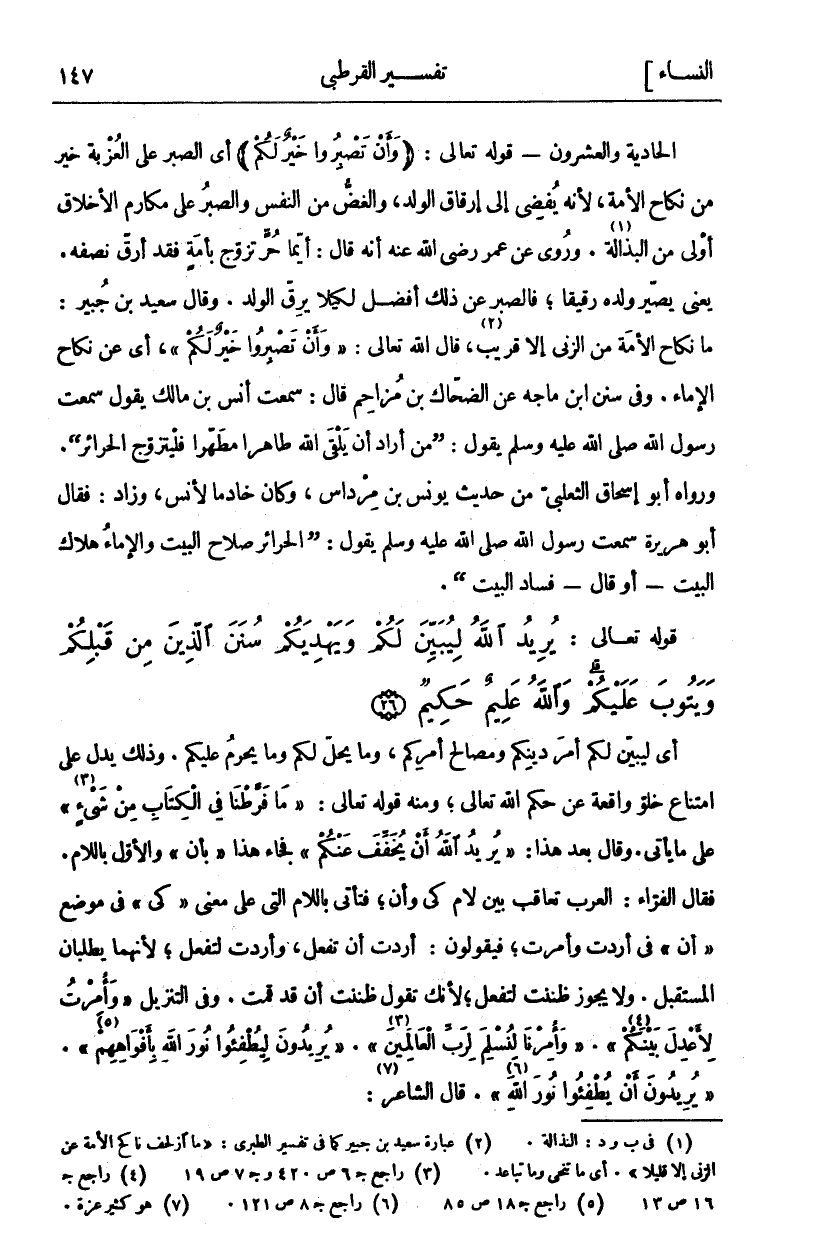 النساء ] تفسير القرطبى ١٤٧
الحادية والعشرون — قوله تعالى : ﴿وَأَنْ تَصْبِرُوا خَيْرٌ لَكُمْ﴾ أى الصبر على العُزْبة خير
من نكاح الأمة، لأنه يُفضِى إلى إرقاق الولد، والغضُّ من النفس والصبرُ على مكارم الأخلاق
أوْلى من البذالة (١) . ورُوى عن عمر رضى الله عنه أنه قال : أيّما حُرٍّ تزوّج بأمَةٍ فقد أرقّ نصفه .
يعنى يصيّر ولده رقيقا ؛ فالصبر عن ذلك أفضل لكيلا يرِقّ الولد . وقال سعيد بن جُبير :
ما نكاح الأمَة من الزنى إلا قريب (٢)، قال الله تعالى : « وَأَنْ تَصْبِرُوا خَيْرٌ لَكُمْ »، أى عن نكاح
الإماء . وفى سنن ابن ماجه عن الضحّاك بن مُزاحِم قال : سمعت أنس بن مالك يقول سمعت
رسول الله صلى الله عليه وسلم يقول : ”من أراد أن يَلْقَى الله طاهرا مطهَّرا فليتزوّج الحرائر“ .
ورواه أبو إسحاق الثعلبىّ من حديث يونس بن مِرْداس ، وكان خادما لأنس، وزاد : فقال
أبو هريرة سمعت رسول الله صلى الله عليه وسلم يقول : ”الحرائر صلاح البيت والإماءُ هلاك
البيت — أو قال — فساد البيت “ .
قوله تعالى : يُرِيدُ ٱللَّهُ لِيُبَيِّنَ لَكُمْ وَيَهْدِيَكُمْ سُنَنَ ٱلَّذِينَ مِن قَبْلِكُمْ
وَيَتُوبَ عَلَيْكُمْ ۗ وَٱللَّهُ عَلِيمٌ حَكِيمٌ ﴿٢٦﴾
أى ليبيّن لكم أمرَ دينكم ومصالح أمرِكم ، وما يحلّ لكم وما يحرمُ عليكم . وذلك يدل على
امتناع خلوّ واقعة عن حكم الله تعالى ؛ ومنه قوله تعالى : « مَا فَرَّطْنَا فِى الْكِتَابِ مِنْ شَىْءٍ (٣) »
على ما يأتى . وقال بعد هذا : « يُرِيدُ ٱللَّهُ أَنْ يُخَفِّفَ عَنْكُمْ » فجاء هذا « بأن » والأوّل باللام .
فقال الفرّاء : العرب تعاقب بين لام كى وأن ؛ فتأتى باللام التى على معنى « كى » فى موضع
« أن » فى أردت وأمرت ؛ فيقولون : أردت أن تفعل ، وأردت لتفعل ؛ لأنهما يطلبان
المستقبل . ولا يجوز ظننت لتفعل ؛ لأنك تقول ظننت أن قد قمت . وفى التنزيل « وَأُمِرْتُ
لِأَعْدِلَ بَيْنَكُمْ (٤) » . « وَأُمِرْنَا لِنُسْلِمَ لِرَبِّ الْعَالَمِينَ (٣) » . « يُرِيدُونَ لِيُطْفِئُوا نُورَ اللهِ بِأَفْوَاهِهِمْ (٥) » .
« يُرِيدُونَ أَنْ يُطْفِئُوا نُورَ اللهِ (٦) » . قال الشاعر (٧) :
(١) فى ب و د : النذالة . (٢) عبارة سعيد بن جبير كما فى تفسير الطبرى : « ما ازلحف ناكح الأمة عن
الزنى إلا قليلا » . أى ما تنحى وما تباعد . (٣) راجع جـ ٦ ص ٤٢٠ و جـ ٧ ص ١٩ (٤) راجع جـ
١٦ ص ١٣ (٥) راجع جـ ١٨ ص ٨٥ (٦) راجع جـ ٨ ص ١٢١ . (٧) هو كثير عزة .